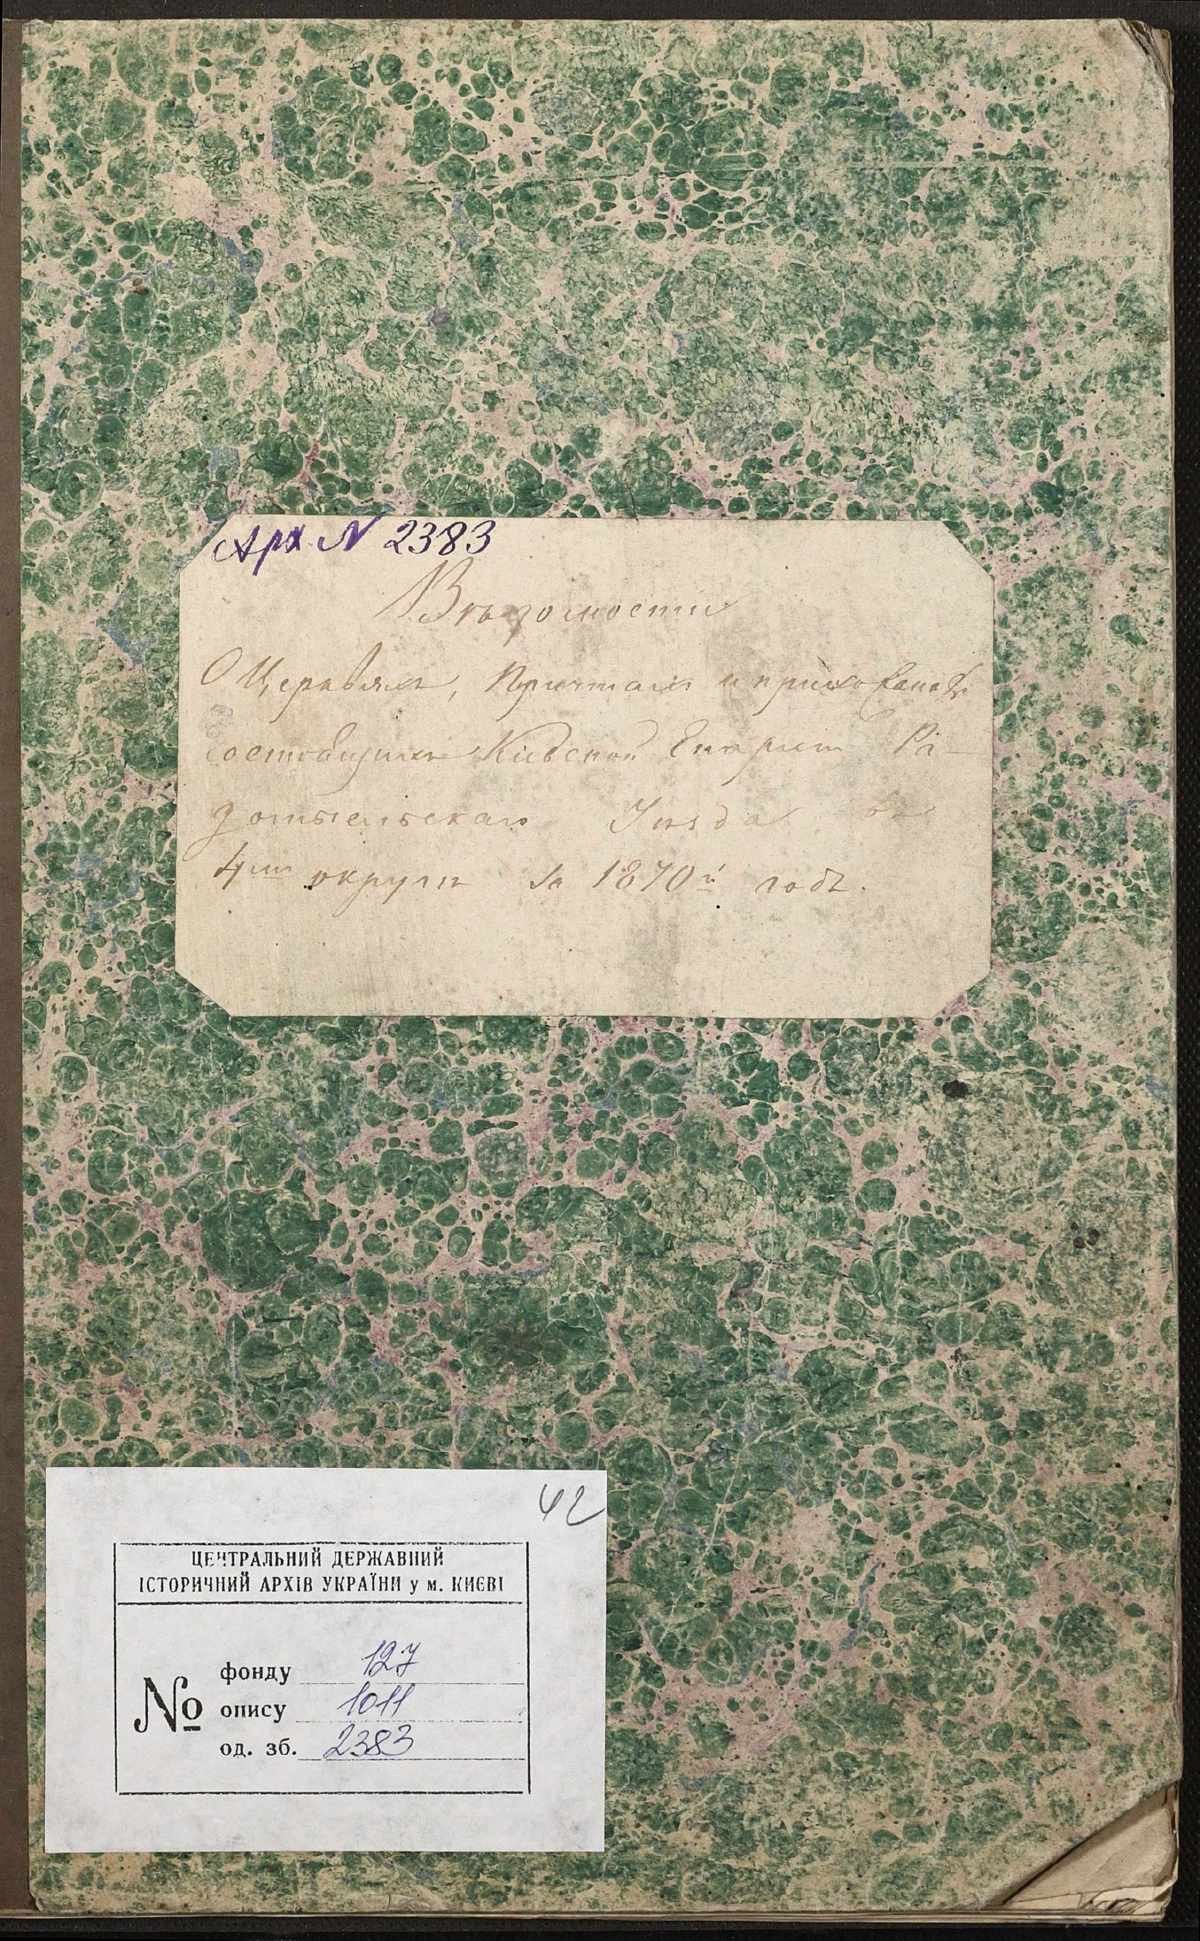 Арх. N 2383
Вѣдомости
О Церквахъ, Причтахъ и прихожанахъ
состоящихъ Кіевской Епархіи Ра-
домысльскаго Уѣзда въ
4мъ округѣ за 1870й годъ.
42
ЦЕНТРАЛЬНИЙ ДЕРЖАВНИЙ
ІСТОРИЧНИЙ АРХІВ УКРАЇНИ у м. КИЄВІ
№
фонду 127
опису 1011
од. зб. 2383